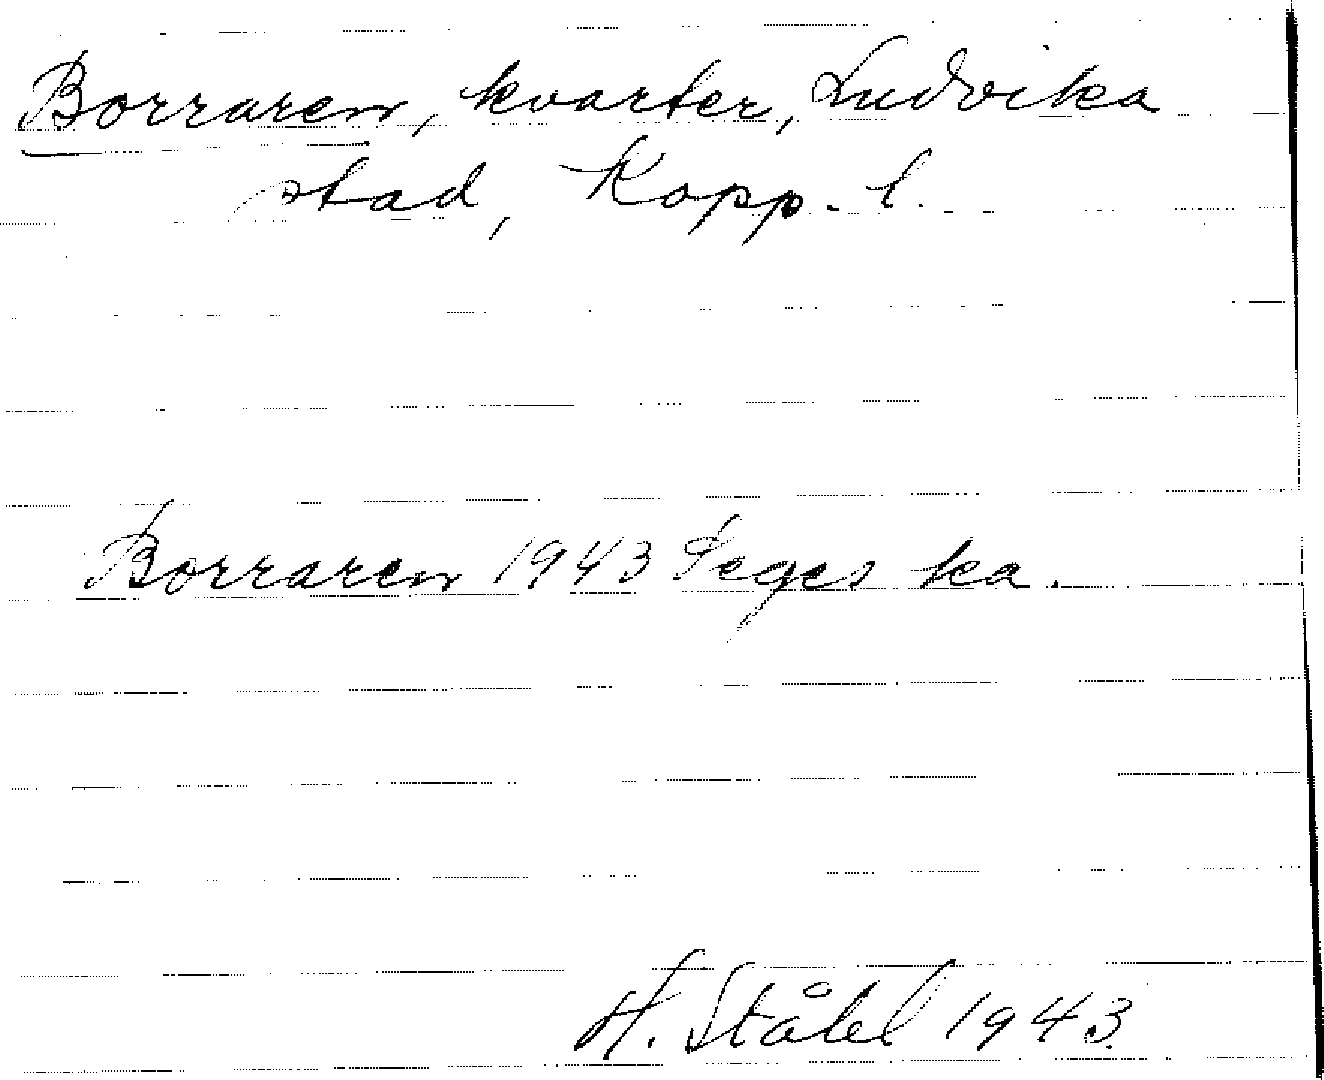 Borraren, kvarter, Ludvika
stad, Kopp. l.
Borraren 1943 Seges ka.
H. Ståhl 1943